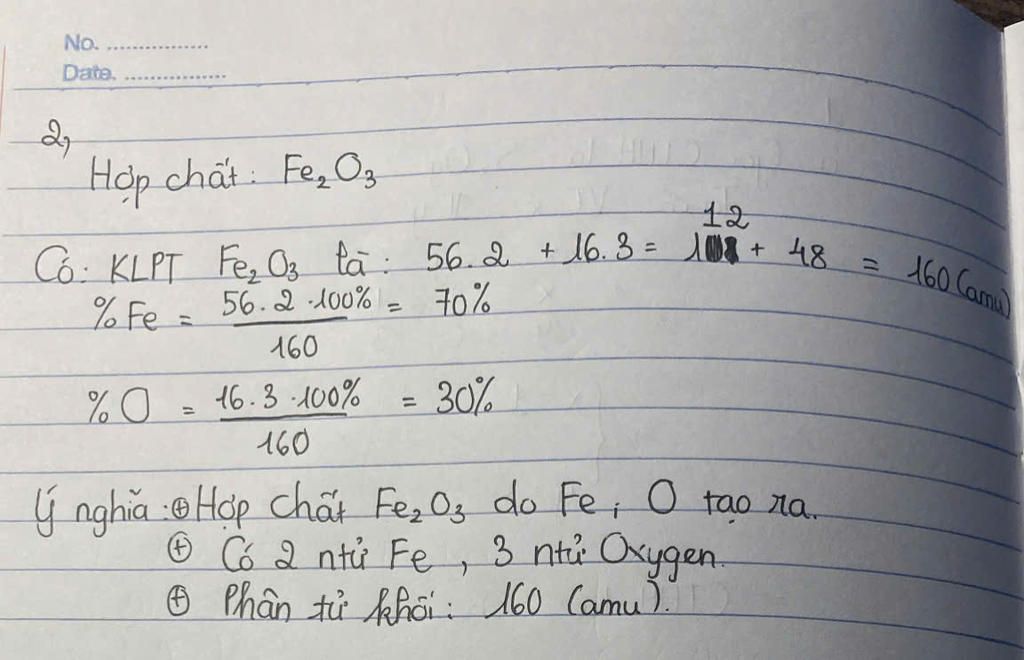 No. ................
Date. ................
2,
Hợp chất: Fe₂O₃
Có: KLPT Fe₂O₃ là: 56.2 + 16.3 = 112 + 48 = 160 (amu)
%Fe = 56.2.100% / 160 = 70%
%O = 16.3.100% / 160 = 30%
Ý nghĩa: ⊕ Hợp chất Fe₂O₃ do Fe; O tạo ra.
⊕ Có 2 ntử Fe, 3 ntử Oxygen.
⊕ Phân tử khối: 160 (amu).